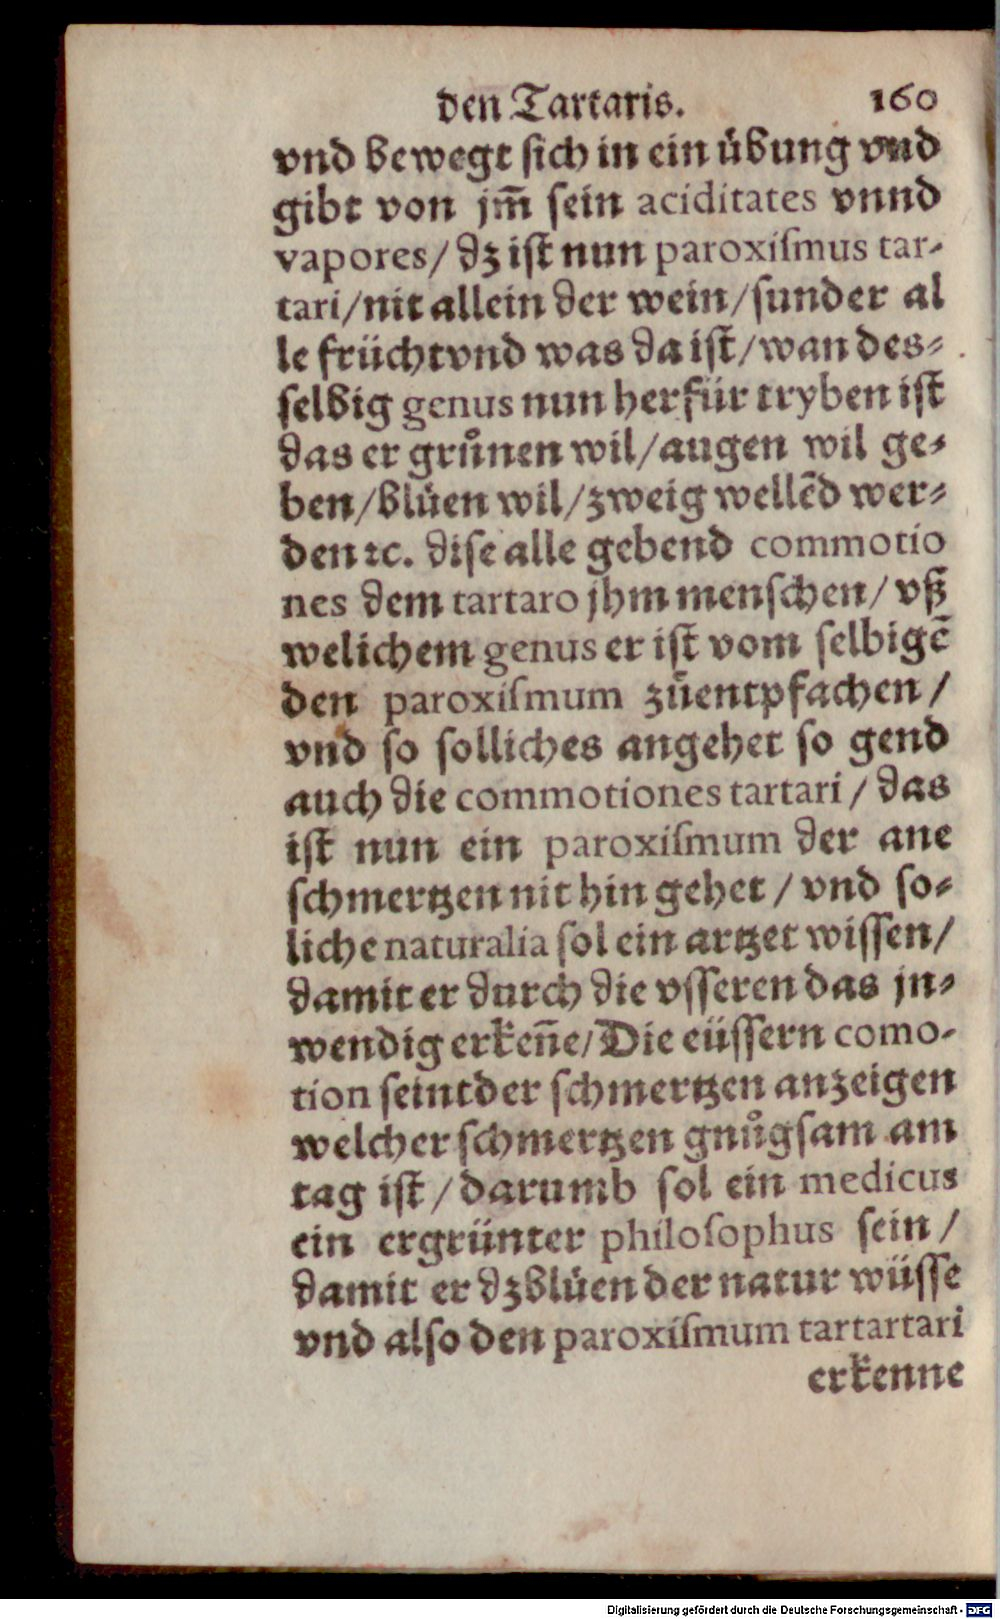 den Tartaris. 160
vnd bewegt sich in ein übung vnd
gibt von jm̃ sein aciditates vnnd
vapores/ dz ist nun paroxiſmus tar-
tari/nit allein der wein/sunder al
le früchtvnd was da ist/wan des⸗
selbig genus nun herfür tryben ist
das er grůnen wil/augen wil ge⸗
ben/blüen wil/zweig wellēd wer⸗
den ꝛc. dise alle gebend commotio
nes dem tartaro jhm menschen/ vß
welichem genus er ist vom selbigē
den paroxiſmum zůentpfachen/
vnd so solliches angehet so gend
auch die commotiones tartari/ das
ist nun ein paroxiſmum der ane
schmertzen nit hin gehet/ vnd so⸗
liche naturalia sol ein artzet wissen/
damit er durch die vsseren das jn⸗
wendig erkeñe/Die eüssern como-
tion seint der schmertzen anzeigen
welcher schmertzen gnůgsam am
tag ist/ darumb sol ein medicus
ein ergrünter philoſophus sein/
damit er dz blüen der natur wüsse
vnd also den paroxiſmum tartartari
erkenne
Digitalisierung gefördert durch die Deutsche Forschungsgemeinschaft - DFG